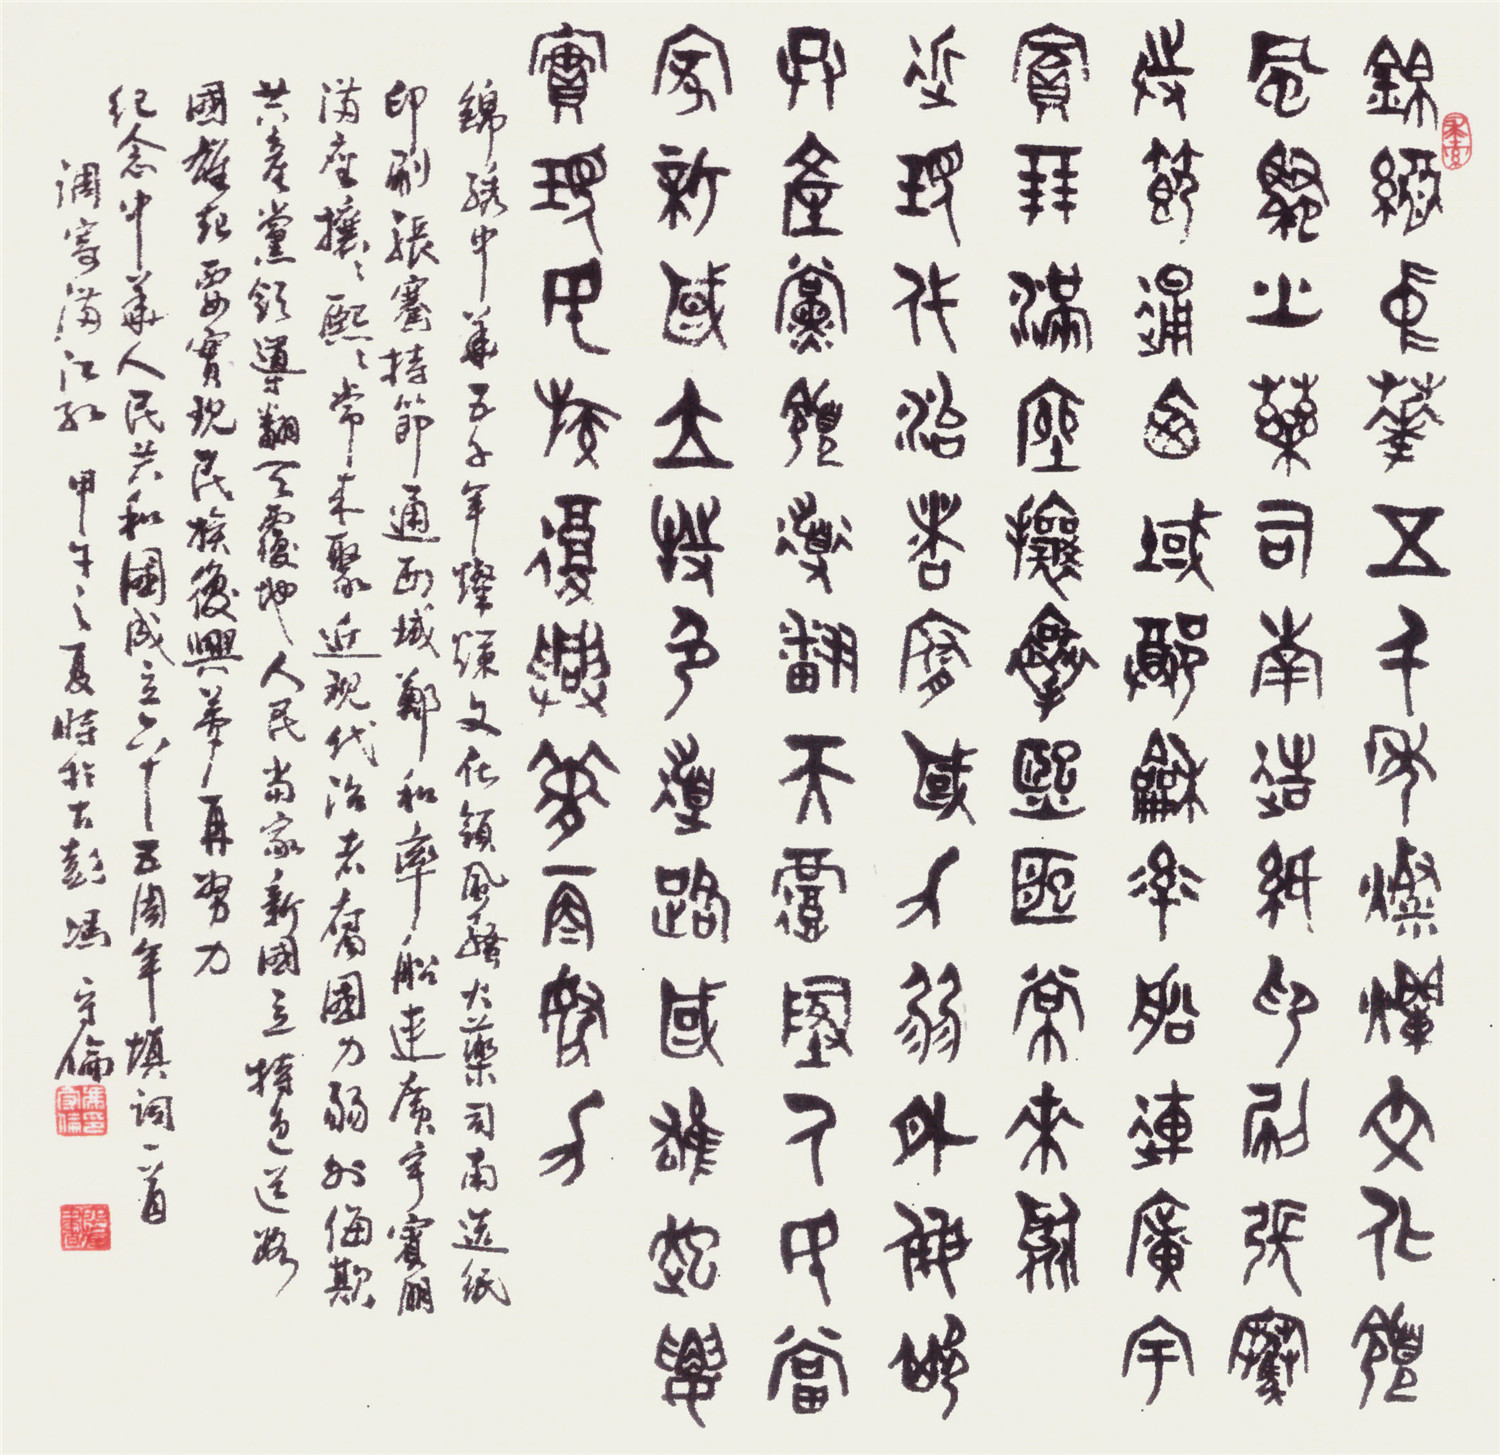 錦繡中華五千年燦爛文化領
風騷火藥司南造紙印刷張騫
持節通西域鄭和率船連廣宇
賓朋滿座攘攘熙熙常來聚
近現代治者腐國力弱外侮欺
共產黨領導翻天覆地人民當
家新國立特色道路國雄起要
實現民族復興夢再努力
錦繡中華五千年燦爛文化領風騷火藥司南造紙
印刷張騫持節通西域鄭和率船連廣宇賓朋
滿座攘〻熙〻常來聚近現代治者腐國力弱外侮欺
共產黨領導翻天覆地人民當家新國立特色道路
國雄起要實現民族復興夢再努力
紀念中華人民共和國成立六十五周年填詞一首
調寄滿江紅 甲午之夏時於古彭馮守倫